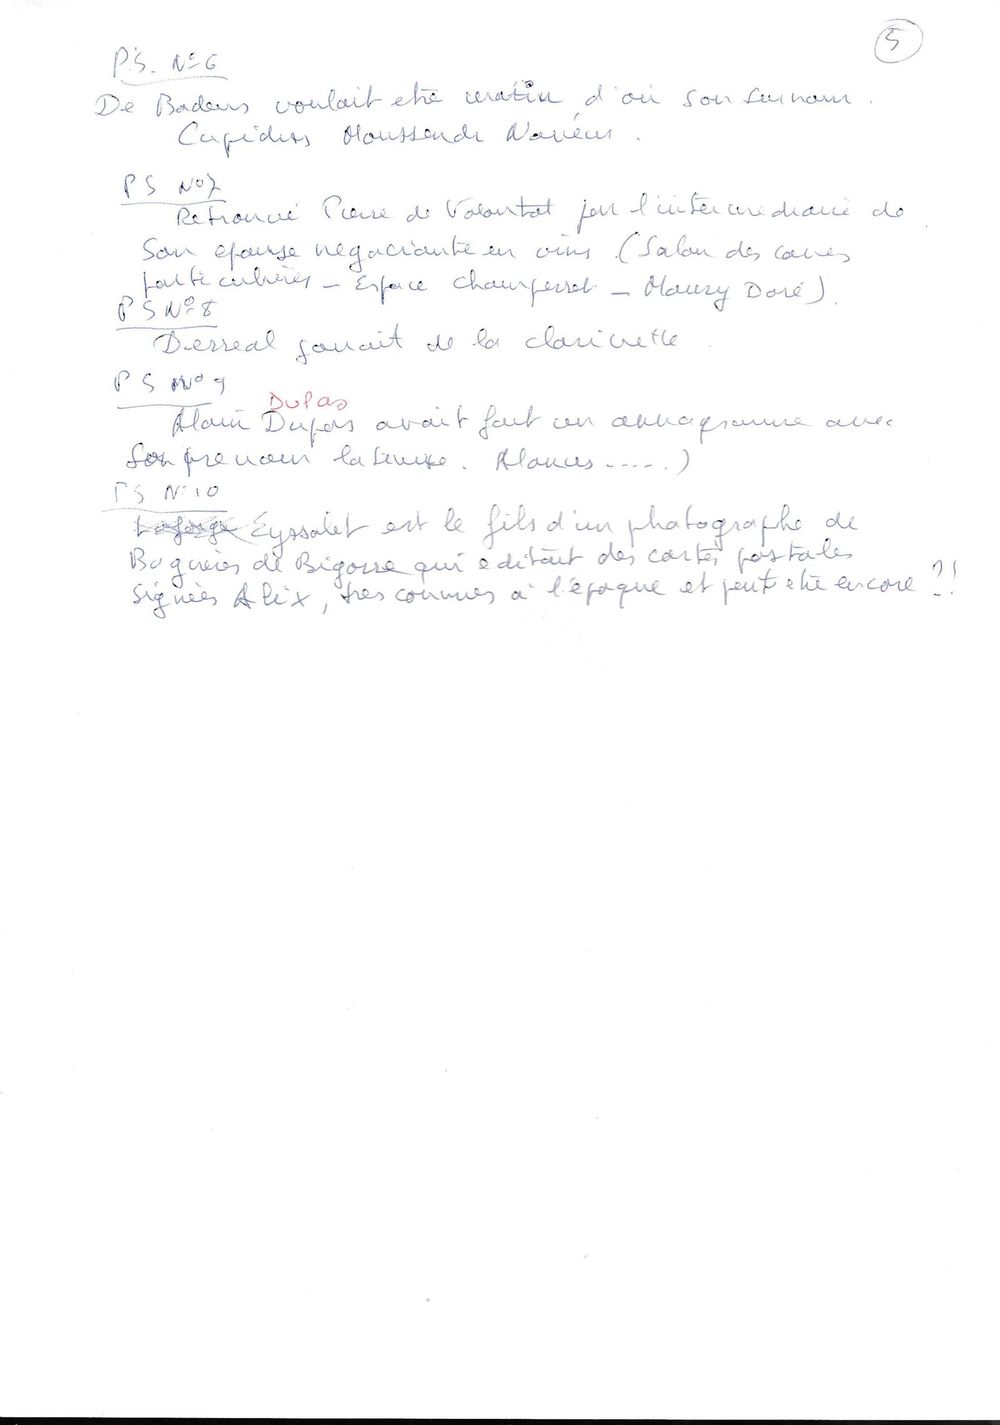 5
P.S. N° 6
De Badens voulait etre marin d'où son surnom.
Cupidus
PS N° 7
Retrouvé Pierre de Volontat par l'intermediaire de
son épouse negociante en vins. (Salon des caves
particulières - Espace Champerret - Maury Doré)
PS N° 8
Derreal jouait de la clarinette.
PS N° 9
Dupas
Alain Dupas avait fait un annagramme avec
son prenom latinise. Alanus .....)
PS N° 10
Eyssalet est le fils d'un photographe de
Bagnères de Bigorre qui editait des cartes postales
signées Alix, tres connues à l'époque et peut etre encore ?!